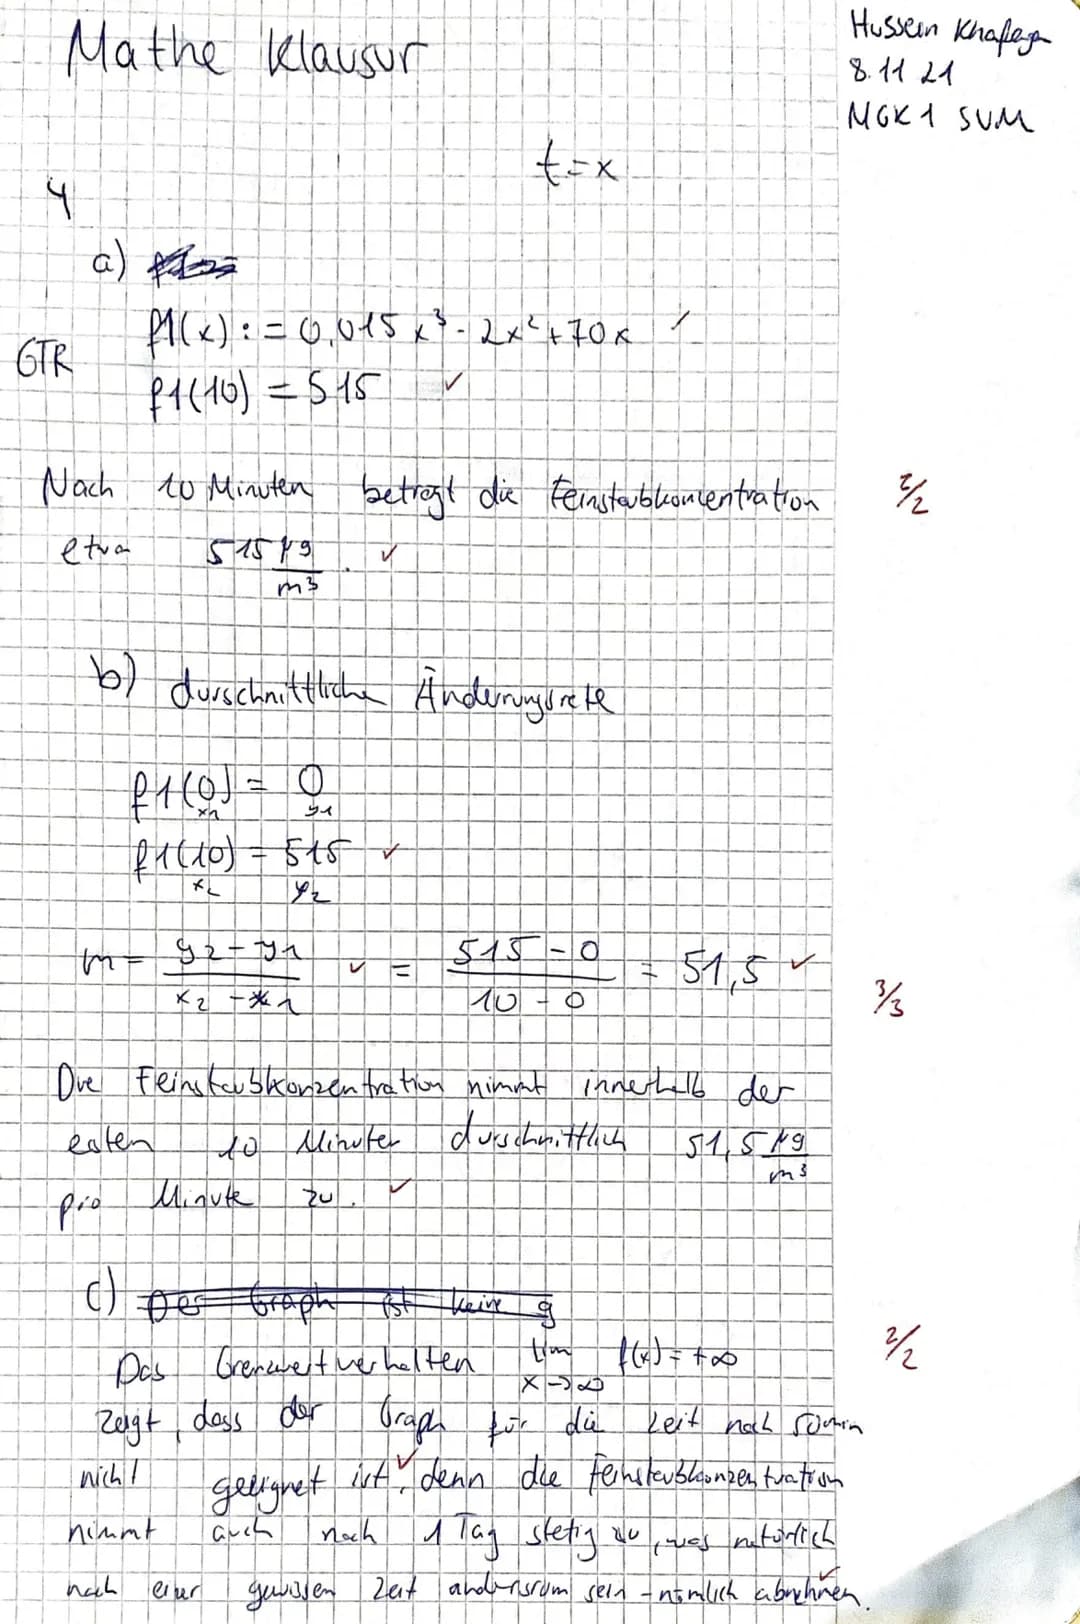 Mathe Klausur
Hussein Khafaga
8.11 21
MGK 1 SUM
t = x
4
a)
f1(x) := 0,015x³ - 2x² + 70x ✓
GTR
f1(10) = 515 ✓
Nach 10 Minuten beträgt die Feinstaubkoncentration 2/2
etwa 515 µg/m³ . ✓
b) durschnittliche Änderungsrate
f1(0) = 0
x1 y1
f1(10) = 515 ✓
x2 y2
m = (y2 - y1)/(x2 - x1) ✓ = (515 - 0)/(10 - 0) = 51,5 ✓
3/3
Die Feinstaubkonzentration nimmt innerhalb der
esten 10 Minuten durschnittlich 51,5 µg/m³
pro Minute zu. ✓
c) Der Graph ist keine g
2/2
Das Grenzwertverhalten lim x->∞ f(x) = +∞
zeigt, dass der Graph für die Zeit nach 50min
nicht geeignet ist ✓, denn die Feinstaubkonzentration
nimmt auch nach 1 Tag stetig zu, was natürlich
nach einer gewissen Zeit andersrum sein - nämlich abnehmen. ✓